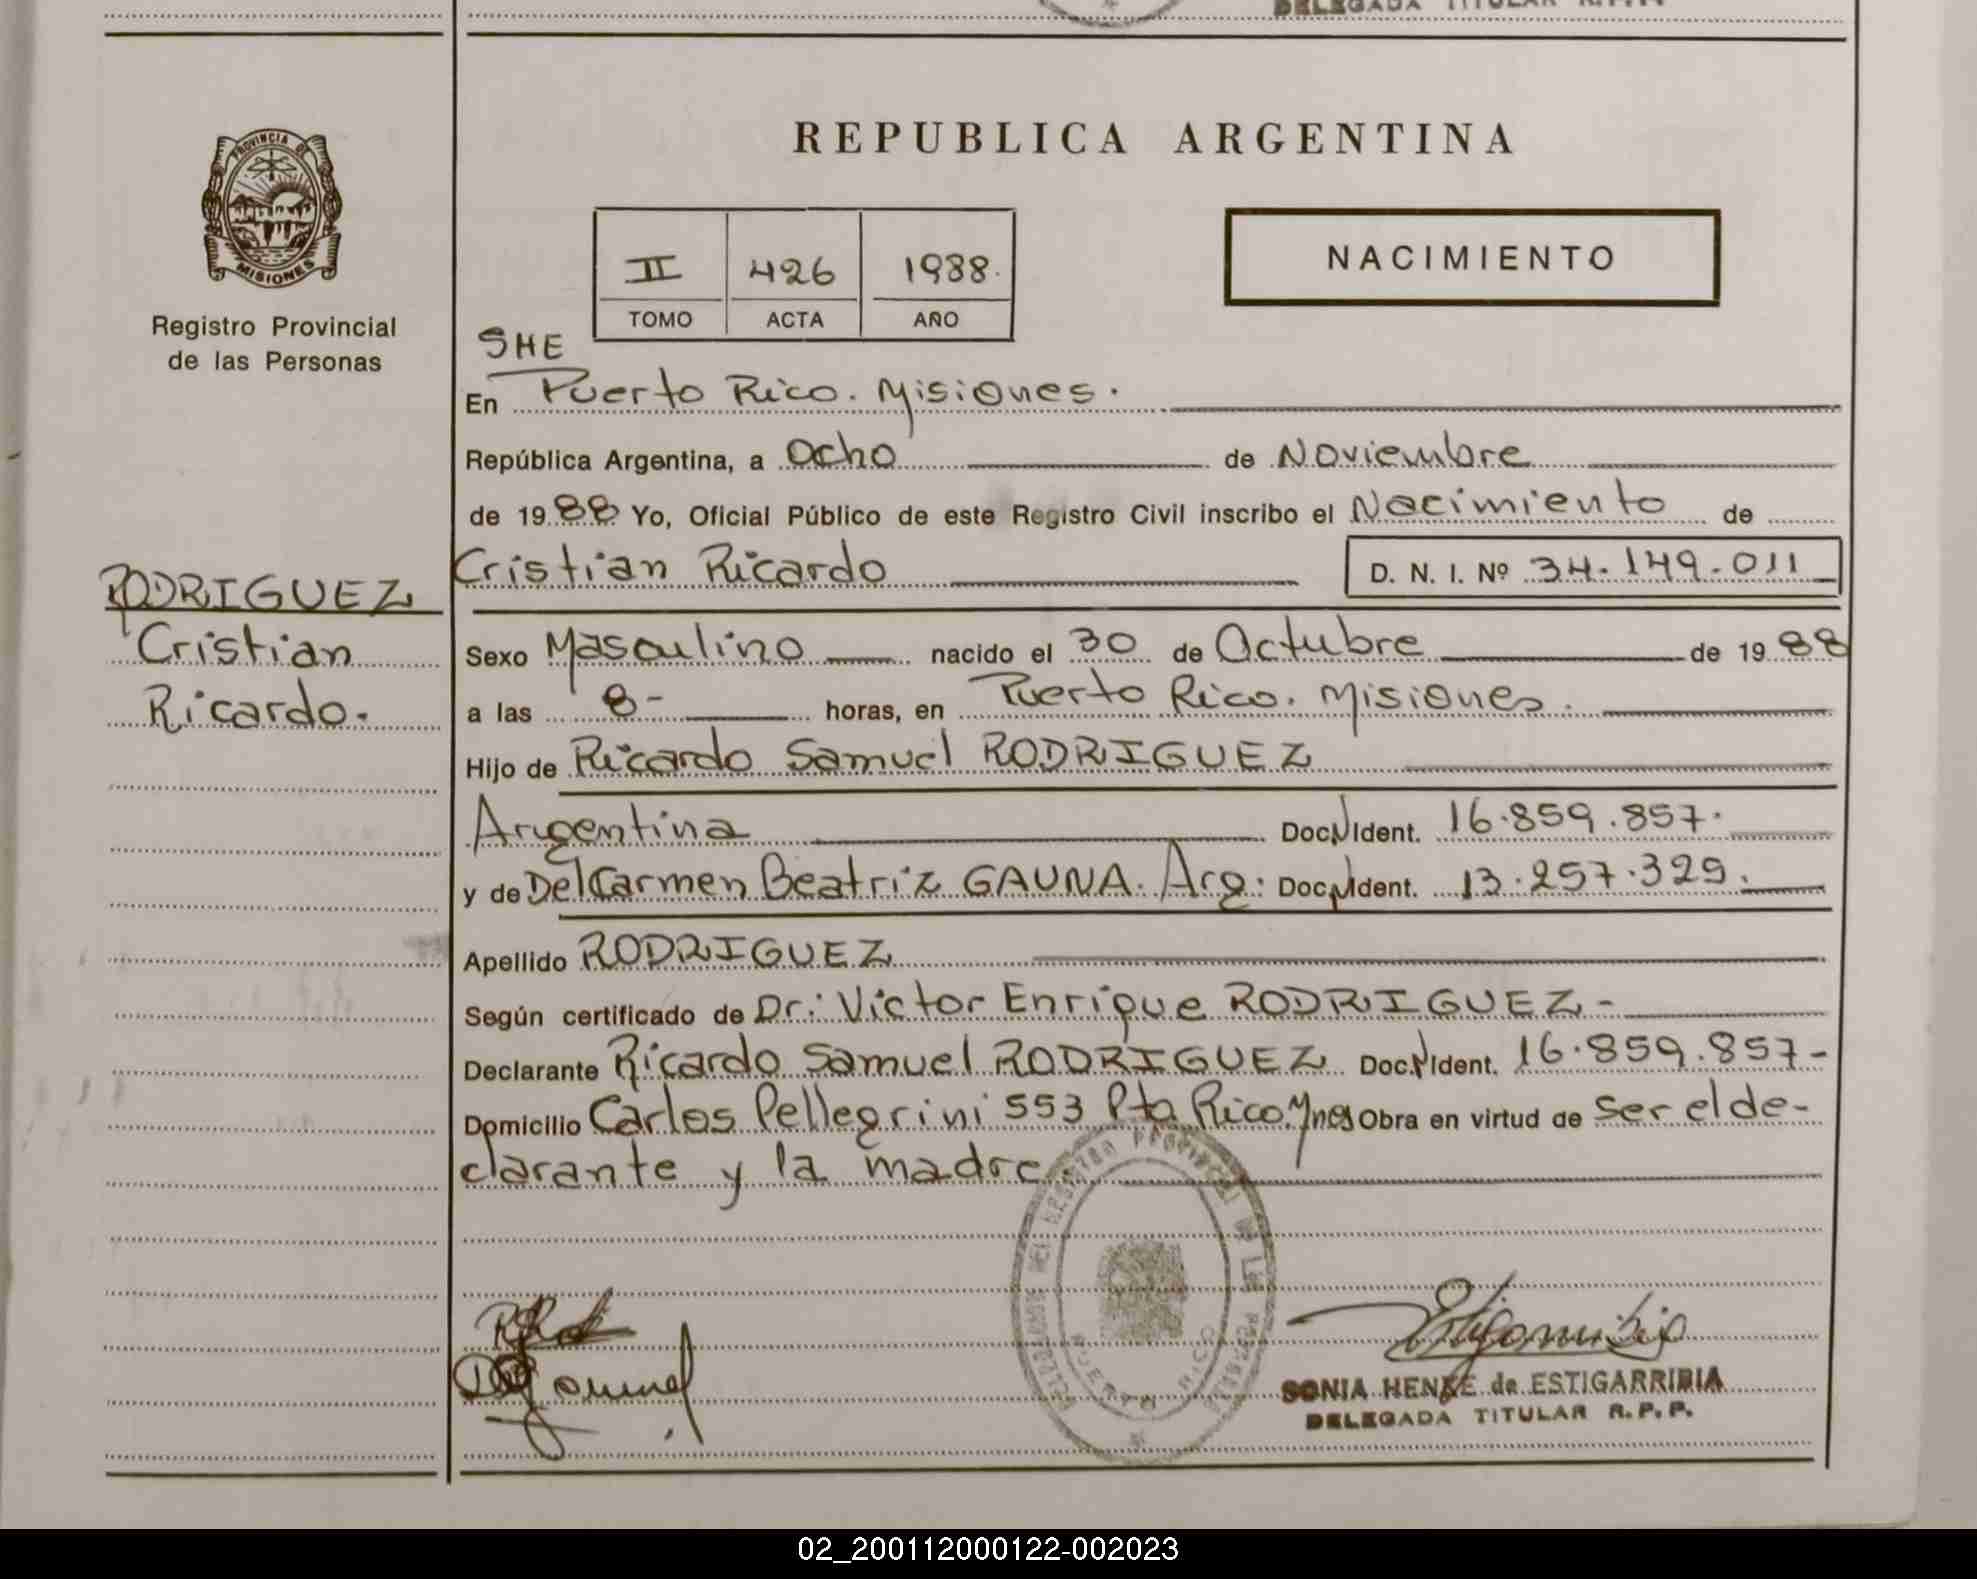 DELEGADA TITULAR R.P.P.
PROVINCIA DE
MISIONES
Registro Provincial
de las Personas
REPUBLICA ARGENTINA
II 426 1988.
TOMO ACTA AÑO
NACIMIENTO
SHE
En Puerto Rico. Misiones.
República Argentina, a Ocho de Noviembre
de 1988 Yo, Oficial Público de este Registro Civil inscribo el Nacimiento de
Cristian Ricardo D. N. I. Nº 34.149.011
RODRIGUEZ
Cristian
Ricardo.
Sexo Masculino nacido el 30 de Octubre de 1988
a las 8- horas, en Puerto Rico. Misiones.
Hijo de Ricardo Samuel RODRIGUEZ
Argentina Doc. Ident. 16.859.857.
y de Del Carmen Beatriz GAUNA. Arg. Doc. Ident. 13.257.329.
Apellido RODRIGUEZ
Según certificado de Dr: Victor Enrique RODRIGUEZ-
Declarante Ricardo Samuel RODRIGUEZ Doc. Ident. 16.859.857-
Domicilio Carlos Pellegrini 553 Pto Rico. Mnes Obra en virtud de Ser el de-
clarante y la madre
PUERTO RICO
SONIA HENKE de ESTIGARRIBIA
DELEGADA TITULAR R.P.P.
02_200112000122-002023